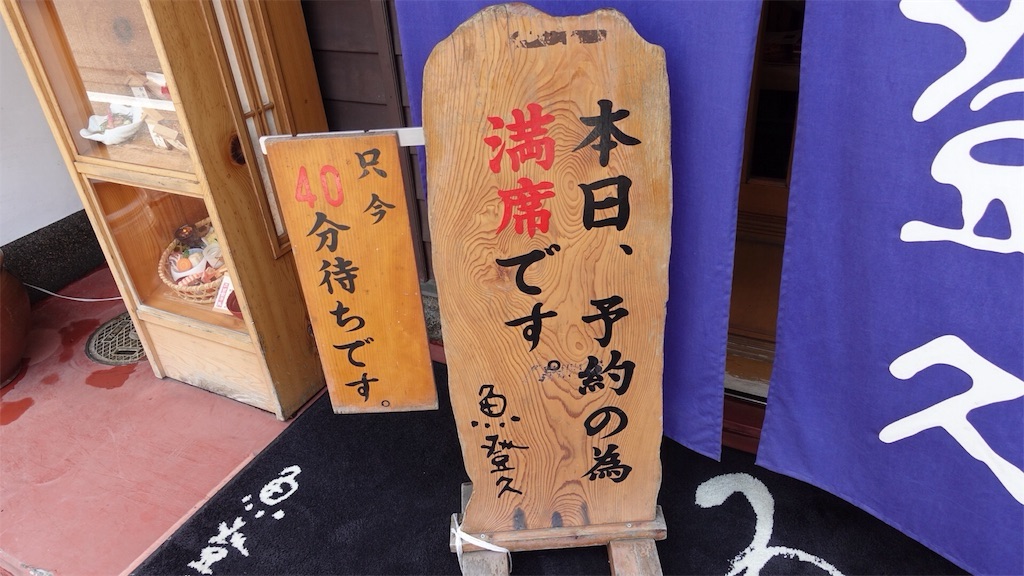 本日、予約の為
満席です。
魚登久
只今
40分待ちです。
登久
魚登